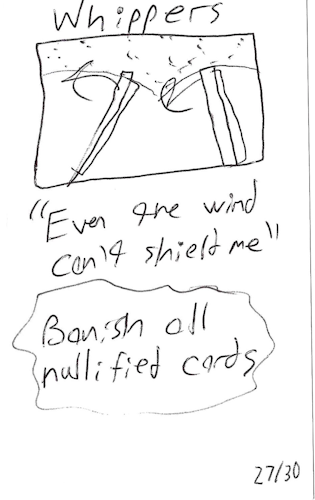 Whippers
"Even the wind
can't shield me"
Banish all
nullified cards
27/30